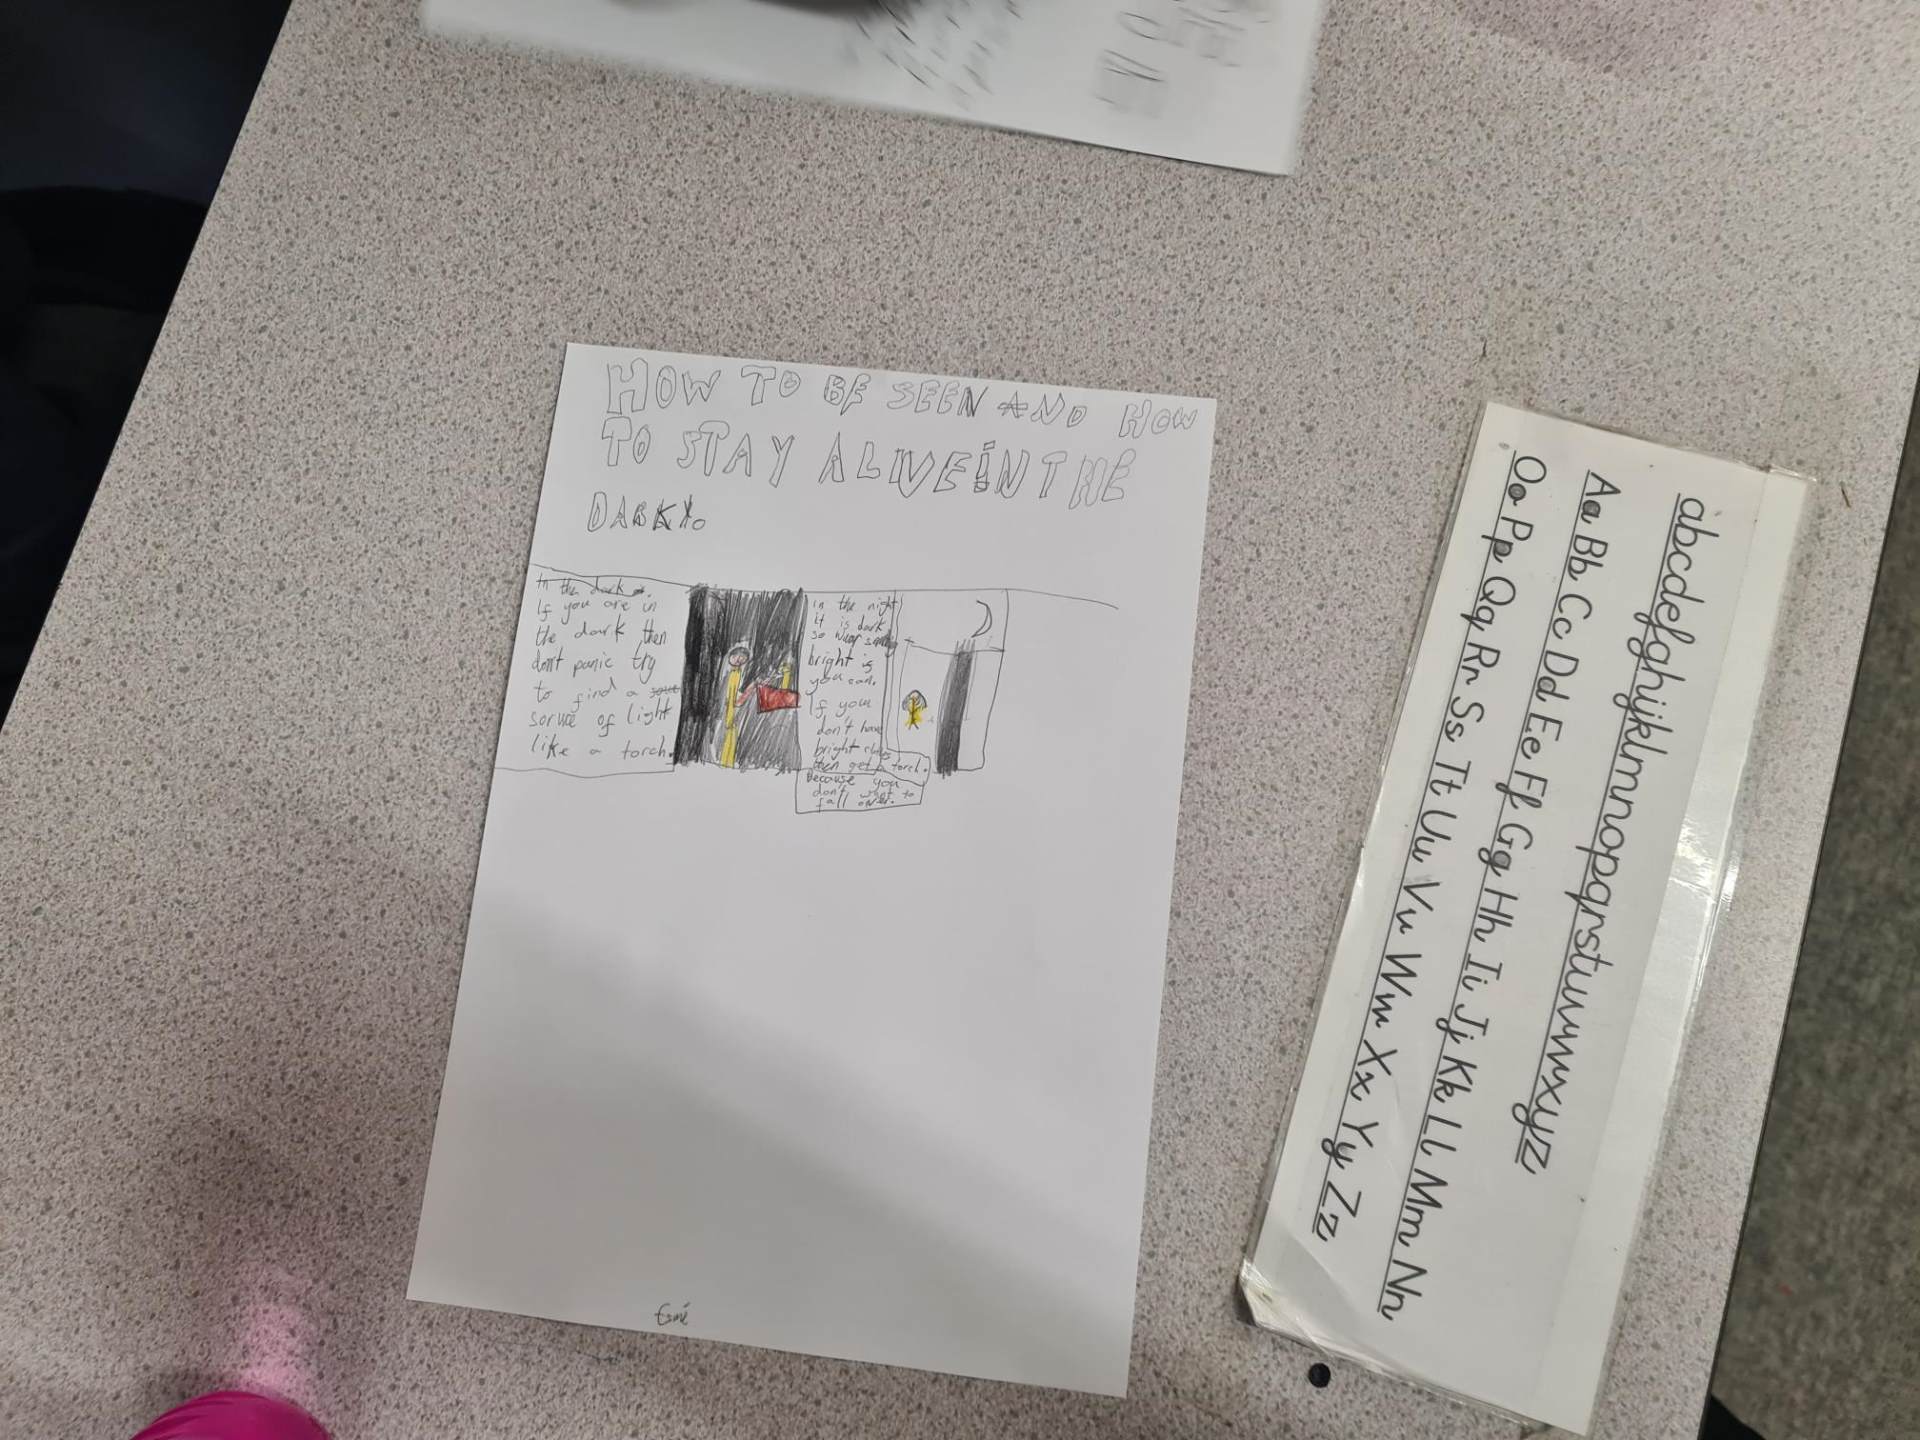 HOW TO BE SEEN AND HOW
TO STAY ALIVE! IN THE
DARK!.
In the dark.
If you are in
the dark then
don't panic try
to find a
sorwe of light
like a torch.
in the night
it is dark
so wear
bright is
you can.
If you
don't have
bright
then get a torch.
Because you
don't want to
fall over.
Esmé
abcdefghijklmnopqrstuvwxyz
Aa Bb Cc Dd Ee Ff Gg Hh Ii Jj Kk Ll Mm Nn
Oo Pp Qq Rr Ss Tt Uu Vv Ww Xx Yy Zz